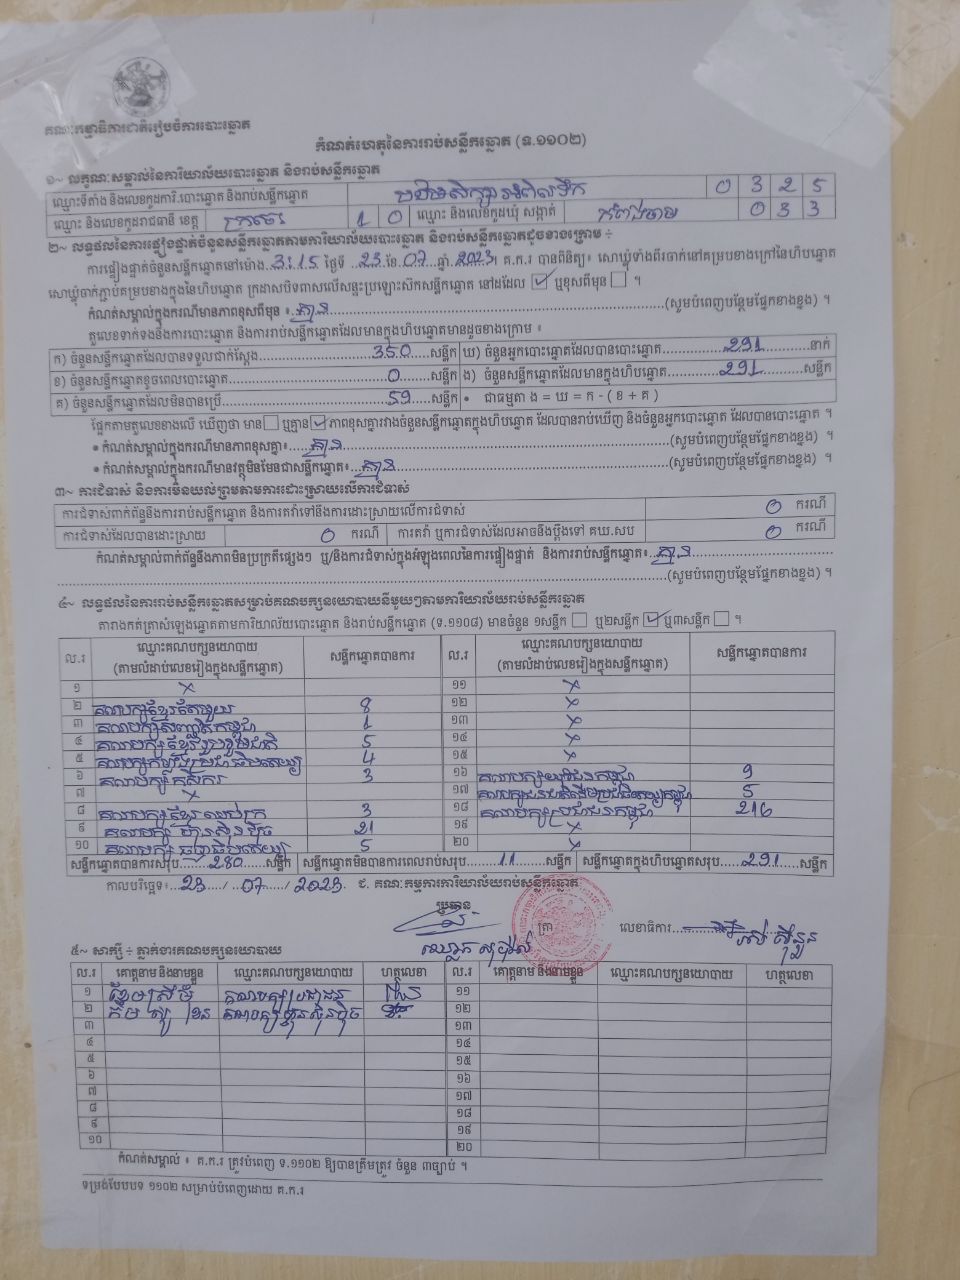 គណៈកម្មាធិការជាតិរៀបចំការបោះឆ្នោត
កំណត់ហេតុនៃការរាប់សន្លឹកឆ្នោត (ទ.១១០២)
១~ លក្ខណៈសម្គាល់នៃការិយាល័យបោះឆ្នោត និងរាប់សន្លឹកឆ្នោត
ឈ្មោះទីតាំង និងលេខកូដការិ.បោះឆ្នោត និងរាប់សន្លឹកឆ្នោត 0 3 2 5
ឈ្មោះ និងលេខកូដរាជធានី ខេត្ត ក្រចេះ 1 0 ឈ្មោះ និងលេខកូដឃុំ សង្កាត់ កំពង់ចាម 0 3 3
២~ លទ្ធផលនៃការផ្ទៀងផ្ទាត់ចំនួនសន្លឹកឆ្នោតតាមការិយាល័យបោះឆ្នោត និងរាប់សន្លឹកឆ្នោតដូចខាងក្រោម ៖
ការផ្ទៀងផ្ទាត់ចំនួនសន្លឹកឆ្នោតនៅម៉ោង 3:15 ថ្ងៃទី 23 ខែ 07 ឆ្នាំ 2023។ គ.ក.រ បានពិនិត្យ៖ សោឃ្លុំទាំងពីរចាក់នៅគម្របខាងក្រៅនៃហិបឆ្នោត
សោឃ្លុំចាក់ភ្ជាប់គម្របខាងក្នុងនៃហិបឆ្នោត ក្រដាសបិទពាសលើសន្ទះប្រឡោះស៊កសន្លឹកឆ្នោត នៅដដែល ✓ ឬខុសពីមុន ។
កំណត់សម្គាល់ក្នុងករណីមានភាពខុសពីមុន ៖ គ្មាន (សូមបំពេញបន្ថែមផ្នែកខាងខ្នង) ។
តួលេខទាក់ទងនឹងការបោះឆ្នោត និងការរាប់សន្លឹកឆ្នោតដែលមានក្នុងហិបឆ្នោតមានដូចខាងក្រោម ៖
ក) ចំនួនសន្លឹកឆ្នោតដែលបានទទួលជាក់ស្តែង 350 សន្លឹក ឃ) ចំនួនអ្នកបោះឆ្នោតដែលបានបោះឆ្នោត 291 នាក់
ខ) ចំនួនសន្លឹកឆ្នោតខូចពេលបោះឆ្នោត 0 សន្លឹក ង) ចំនួនសន្លឹកឆ្នោតដែលមានក្នុងហិបឆ្នោត 291 សន្លឹក
គ) ចំនួនសន្លឹកឆ្នោតដែលមិនបានប្រើ 59 សន្លឹក • ជាធម្មតា ង = ឃ = ក - ( ខ + គ )
ផ្អែកតាមតួលេខខាងលើ ឃើញថា មាន ឬគ្មាន ✓ ភាពខុសគ្នារវាងចំនួនសន្លឹកឆ្នោតក្នុងហិបឆ្នោត ដែលបានរាប់ឃើញ និងចំនួនអ្នកបោះឆ្នោត ដែលបានបោះឆ្នោត ។
• កំណត់សម្គាល់ក្នុងករណីមានភាពខុសគ្នា៖ គ្មាន (សូមបំពេញបន្ថែមផ្នែកខាងខ្នង) ។
• កំណត់សម្គាល់ក្នុងករណីមានវត្ថុមិនមែនជាសន្លឹកឆ្នោត៖ គ្មាន (សូមបំពេញបន្ថែមផ្នែកខាងខ្នង) ។
៣~ ការជំទាស់ និងការមិនយល់ព្រមតាមការដោះស្រាយលើការជំទាស់
ការជំទាស់ពាក់ព័ន្ធនឹងការរាប់សន្លឹកឆ្នោត និងការតវ៉ាទៅនឹងការដោះស្រាយលើការជំទាស់ 0 ករណី
ការជំទាស់ដែលបានដោះស្រាយ 0 ករណី ការតវ៉ា ឬការជំទាស់ដែលអាចនឹងប្តឹងទៅ គឃ.សប 0 ករណី
កំណត់សម្គាល់ពាក់ព័ន្ធនឹងភាពមិនប្រក្រតីផ្សេងៗ ឬ/និងការជំទាស់ក្នុងអំឡុងពេលនៃការផ្ទៀងផ្ទាត់ និងការរាប់សន្លឹកឆ្នោត៖ គ្មាន
(សូមបំពេញបន្ថែមផ្នែកខាងខ្នង) ។
៤~ លទ្ធផលនៃការរាប់សន្លឹកឆ្នោតសម្រាប់គណបក្សនយោបាយនីមួយៗតាមការិយាល័យរាប់សន្លឹកឆ្នោត
តារាងកត់ត្រាសំឡេងឆ្នោតតាមការិយាល័យបោះឆ្នោត និងរាប់សន្លឹកឆ្នោត (ទ.១១០៨) មានចំនួន ១សន្លឹក ឬ២សន្លឹក ✓ ឬ៣សន្លឹក ។
ល.រ ឈ្មោះគណបក្សនយោបាយ (តាមលំដាប់លេខរៀងក្នុងសន្លឹកឆ្នោត) សន្លឹកឆ្នោតបានការ ល.រ ឈ្មោះគណបក្សនយោបាយ (តាមលំដាប់លេខរៀងក្នុងសន្លឹកឆ្នោត) សន្លឹកឆ្នោតបានការ
១ x ១១ x
២ គណបក្សខ្មែរតែមួយ 8 ១២ x
៣ គណបក្សសញ្ជាតិកម្ពុជា 1 ១៣ x
៤ គណបក្សខ្មែររួបរួមជាតិ 5 ១៤ x
៥ គណបក្សកម្លាំងប្រជាធិបតេយ្យ 4 ១៥ x
៦ គណបក្សកសិករ 3 ១៦ គណបក្សយុវជនកម្ពុជា 9
៧ x ១៧ គណបក្សជនជាតិដើមប្រជាធិបតេយ្យកម្ពុជា 5
៨ គណបក្សខ្មែរឈប់ក្រ 3 ១៨ គណបក្សប្រជាជនកម្ពុជា 216
៩ គណបក្សហ៊្វុនស៊ិនប៉ិច 21 ១៩ x
១០ គណបក្សធម្មាធិបតេយ្យ 5 ២០ x
សន្លឹកឆ្នោតបានការសរុប 280 សន្លឹក សន្លឹកឆ្នោតមិនបានការពេលរាប់សរុប 11 សន្លឹក សន្លឹកឆ្នោតក្នុងហិបឆ្នោតសរុប 291 សន្លឹក
កាលបរិច្ឆេទ៖ 23 / 07 / 2023 ជ. គណៈកម្មការការិយាល័យរាប់សន្លឹកឆ្នោត
ប្រធាន ត្រា លេខាធិការ
៥~ សាក្សី ៖ ភ្នាក់ងារគណបក្សនយោបាយ
ល.រ គោត្តនាម និងនាមខ្លួន ឈ្មោះគណបក្សនយោបាយ ហត្ថលេខា ល.រ គោត្តនាម និងនាមខ្លួន ឈ្មោះគណបក្សនយោបាយ ហត្ថលេខា
១ គណបក្សប្រជាជន ១១
២ គណបក្សហ៊្វុនស៊ិនប៉ិច ១២
៣ ១៣
៤ ១៤
៥ ១៥
៦ ១៦
៧ ១៧
៨ ១៨
៩ ១៩
១០ ២០
កំណត់សម្គាល់ ៖ គ.ក.រ ត្រូវបំពេញ ទ.១១០២ ឱ្យបានត្រឹមត្រូវ ចំនួន ៣ច្បាប់ ។
ទម្រង់បែបបទ ១១០២ សម្រាប់បំពេញដោយ គ.ក.រ